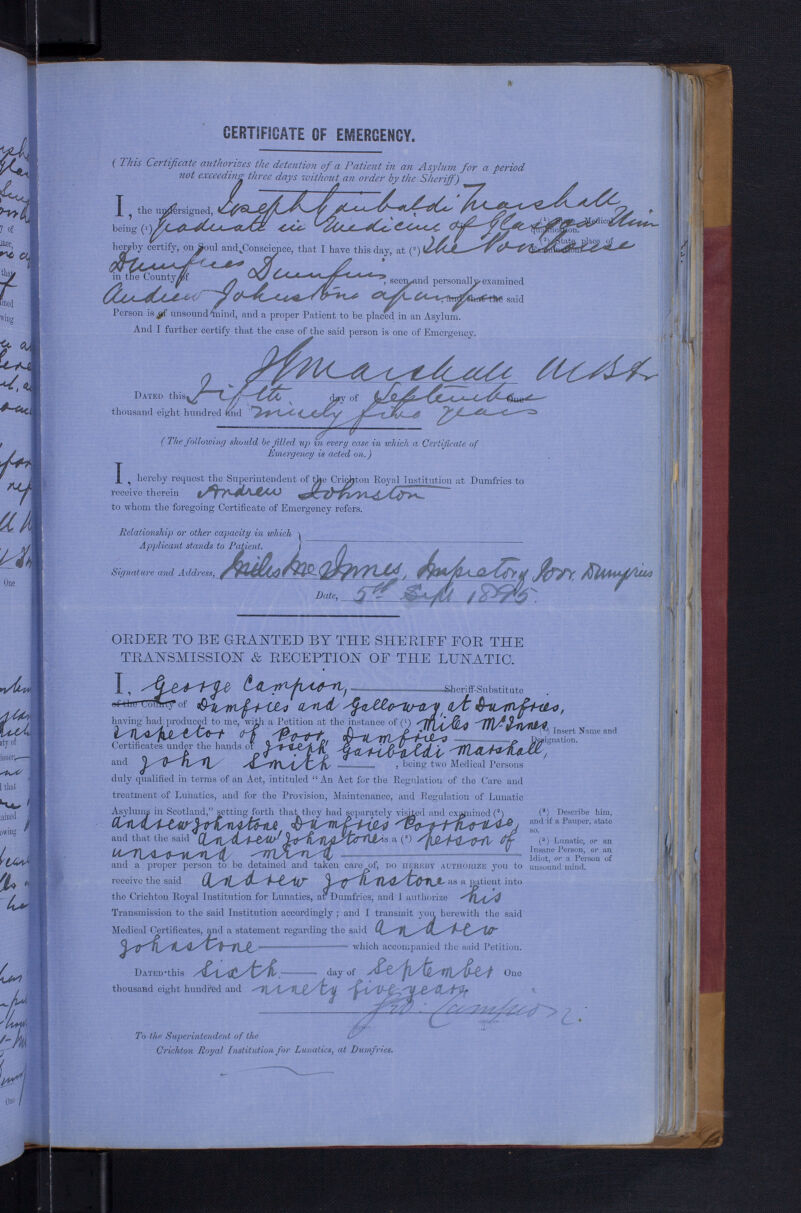 CERTIFICATE OF EMERGENCY.
(This Certificate authorizes the detention of a Patient in an Asylum for a period
not exceeding three days without an order by the Sheriff)
I, the undersigned, Joseph Garibaldi Marshall
being (¹) Graduate in Medicine of Glasgow Univ
(¹) Medical
qualification.
hereby certify, on Soul and Conscience, that I have this day, at (²) The Poorhouse
(²) State place of
Dumfries
in the County of Dumfries, seen and personally examined
Andrew Johnstone a pauper and that the said
Person is of unsound mind, and a proper Patient to be placed in an Asylum.
And I further certify that the case of the said person is one of Emergency.
JGMarshall MB
DATED this Fifth day of September One
thousand eight hundred and ninety five years
(The following should be filled up in every case in which a Certificate of
Emergency is acted on.)
I, hereby request the Superintendent of the Crichton Royal Institution at Dumfries to
receive therein Andrew Johnston
to whom the foregoing Certificate of Emergency refers.
Relationship or other capacity in which
Applicant stands to Patient.
Signature and Address, Miles McInnes, Inspector of Poor, Dumfries
Date, 5th Sept 1895.
ORDER TO BE GRANTED BY THE SHERIFF FOR THE
TRANSMISSION & RECEPTION OF THE LUNATIC.
I, George Campion, Sheriff-Substitute
of the County of Dumfries and Galloway at Dumfries,
having had produced to me, with a Petition at the instance of (¹) Miles McInnes
(¹) Insert Name and
Designation.
Inspector of Poor, Dumfries
Certificates under the hands of Joseph Garibaldi Marshall,
and John Smith, being two Medical Persons
duly qualified in terms of an Act, intituled "An Act for the Regulation of the Care and
treatment of Lunatics, and for the Provision, Maintenance, and Regulation of Lunatic
Asylums in Scotland," setting forth that they had separately visited and examined (²)
(²) Describe him,
and if a Pauper, state
so.
Andrew Johnstone, Dumfries Poorhouse,
and that the said Andrew Johnstone is a (³) person of
(³) Lunatic, or an
Insane Person, or an
Idiot, or a Person of
unsound mind.
unsound mind
and a proper person to be detained and taken care of, DO HEREBY AUTHORIZE you to
receive the said Andrew Johnstone as a patient into
the Crichton Royal Institution for Lunatics, at Dumfries, and I authorize his
Transmission to the said Institution accordingly; and I transmit you herewith the said
Medical Certificates, and a statement regarding the said Andrew
Johnstone which accompanied the said Petition.
DATED this Sixth day of September One
thousand eight hundred and ninety five years.
Geo. Campion.
To the Superintendent of the
Crichton Royal Institution for Lunatics, at Dumfries.